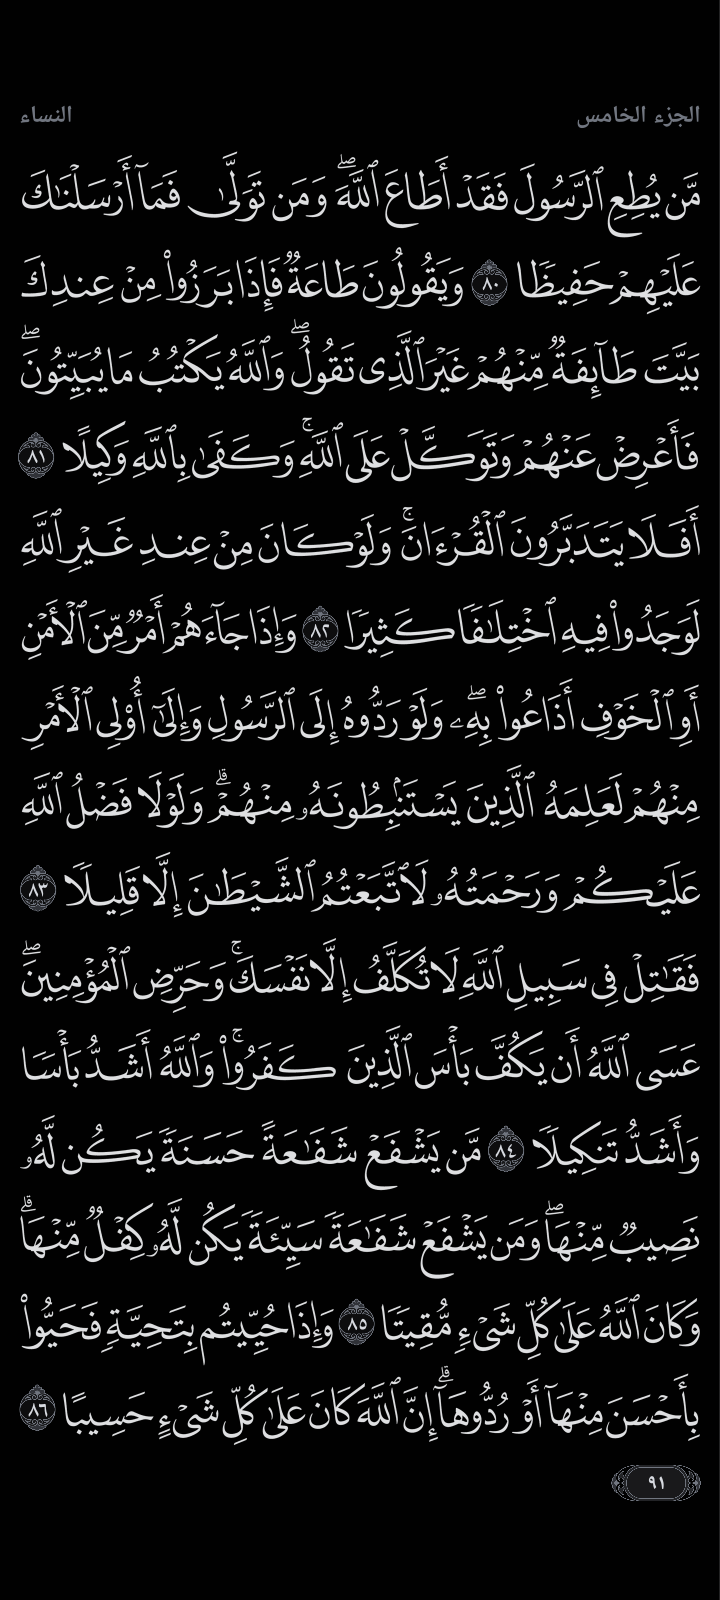 الجزء الخامس النساء
مَّن يُطِعِ ٱلرَّسُولَ فَقَدْ أَطَاعَ ٱللَّهَۖ وَمَن تَوَلَّىٰ فَمَآ أَرْسَلْنَٰكَ
عَلَيْهِمْ حَفِيظٗا ٨٠ وَيَقُولُونَ طَاعَةٞ فَإِذَا بَرَزُواْ مِنْ عِندِكَ
بَيَّتَ طَآئِفَةٞ مِّنْهُمْ غَيْرَ ٱلَّذِي تَقُولُۖ وَٱللَّهُ يَكْتُبُ مَا يُبَيِّتُونَۖ
فَأَعْرِضْ عَنْهُمْ وَتَوَكَّلْ عَلَى ٱللَّهِۚ وَكَفَىٰ بِٱللَّهِ وَكِيلًا ٨١
أَفَلَا يَتَدَبَّرُونَ ٱلْقُرْءَانَۚ وَلَوْ كَانَ مِنْ عِندِ غَيْرِ ٱللَّهِ
لَوَجَدُواْ فِيهِ ٱخْتِلَٰفٗا كَثِيرٗا ٨٢ وَإِذَا جَآءَهُمْ أَمْرٞ مِّنَ ٱلْأَمْنِ
أَوِ ٱلْخَوْفِ أَذَاعُواْ بِهِۦۖ وَلَوْ رَدُّوهُ إِلَى ٱلرَّسُولِ وَإِلَىٰٓ أُوْلِي ٱلْأَمْرِ
مِنْهُمْ لَعَلِمَهُ ٱلَّذِينَ يَسْتَنۢبِطُونَهُۥ مِنْهُمْۗ وَلَوْلَا فَضْلُ ٱللَّهِ
عَلَيْكُمْ وَرَحْمَتُهُۥ لَٱتَّبَعْتُمُ ٱلشَّيْطَٰنَ إِلَّا قَلِيلٗا ٨٣
فَقَٰتِلْ فِي سَبِيلِ ٱللَّهِ لَا تُكَلَّفُ إِلَّا نَفْسَكَۚ وَحَرِّضِ ٱلْمُؤْمِنِينَۖ
عَسَى ٱللَّهُ أَن يَكُفَّ بَأْسَ ٱلَّذِينَ كَفَرُواْۚ وَٱللَّهُ أَشَدُّ بَأْسٗا
وَأَشَدُّ تَنكِيلٗا ٨٤ مَّن يَشْفَعْ شَفَٰعَةً حَسَنَةٗ يَكُن لَّهُۥ
نَصِيبٞ مِّنْهَاۖ وَمَن يَشْفَعْ شَفَٰعَةٗ سَيِّئَةٗ يَكُن لَّهُۥ كِفْلٞ مِّنْهَاۗ
وَكَانَ ٱللَّهُ عَلَىٰ كُلِّ شَيْءٖ مُّقِيتٗا ٨٥ وَإِذَا حُيِّيتُم بِتَحِيَّةٖ فَحَيُّواْ
بِأَحْسَنَ مِنْهَآ أَوْ رُدُّوهَآۗ إِنَّ ٱللَّهَ كَانَ عَلَىٰ كُلِّ شَيْءٍ حَسِيبًا ٨٦
٩١